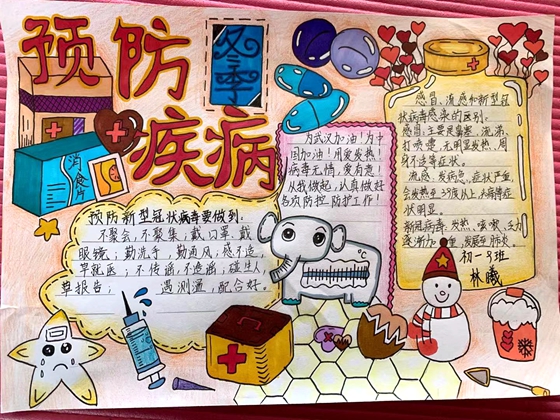 预防
冬季
疾病
消食片
为武汉加油！为中
国加油！用爱发热！
病毒无情，爱有意！
从我做起，认真做好
各项防控、防护工作！
感冒、流感和新型冠
状病毒感染的区别。
感冒：主要是鼻塞、流涕、
打喷嚏，无明显发热，周
身不适等症状。
流感：发病急，症状严重，
会发热至39度以上，头痛等症
状明显。
新冠病毒：发热、咳嗽、乏力
逐渐加重，发展至肺炎
初一3班
林曦
预防新型冠状病毒要做到：
不聚会，不聚集；戴口罩，戴
眼镜；勤洗手，勤通风；感不适，
早就医；不传谣，不造谣；碰生人，
早报告；遇测温，配合好。